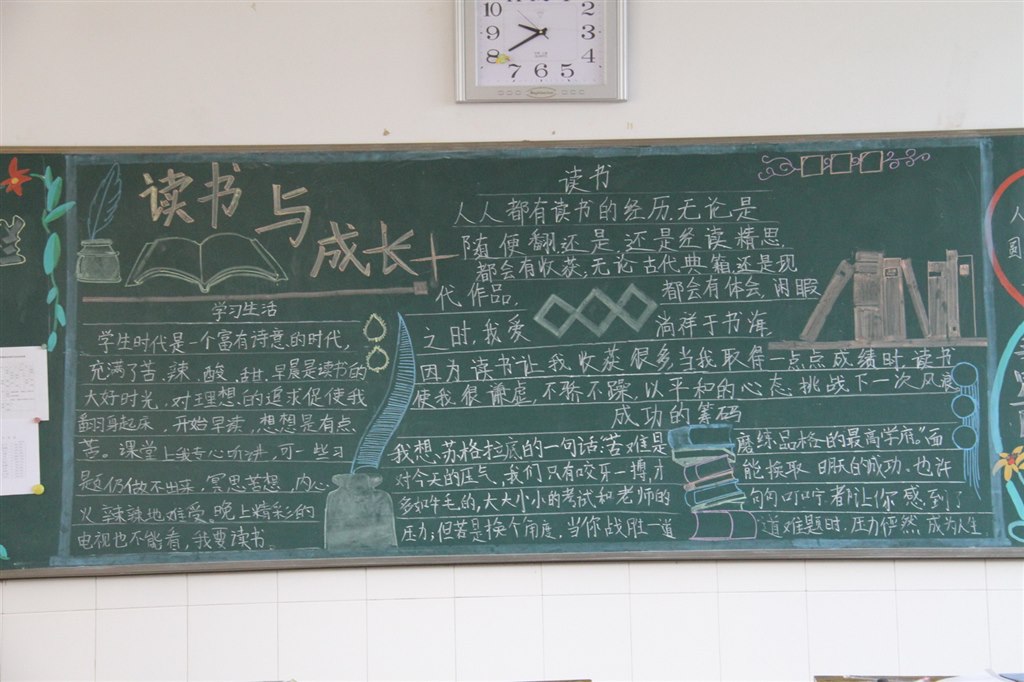 10
2
9
3
8
4
7 6 5
读书与成长
学习生活
学生时代是一个富有诗意的时代,
充满了苦、辣、酸、甜.早晨是读书的
大好时光,对理想的追求促使我
翻身起床,开始早读,想想是有点
苦。课堂上我专心听讲,可一些习
题仍做不出来,冥思苦想,内心
火辣辣地难受.晚上精彩的
电视也不能看,我要读书.
读书
人人都有读书的经历.无论是
随便翻还是 还是经读精思,
都会有收获,无论古代典籍还是现
代作品, 都会有体会,闲暇
之时,我爱 淌祥于书海,
因为读书让我收获很多当我取得一点点成绩时,读书
使我很谦虚,不骄不躁,以平和的心态挑战下一次风浪
成功的筹码
我想苏格拉底的一句话“苦难是 磨练品格的最高学府.”面
对今天的压气,我们只有咬牙一搏,才 能换取 明天的成功.也许
多如牛毛的,大大小小的考试和老师的 句句叮咛都让你感到了
压力,但若是换个角度,当你战胜一道 道难题时,压力俨然成为人生